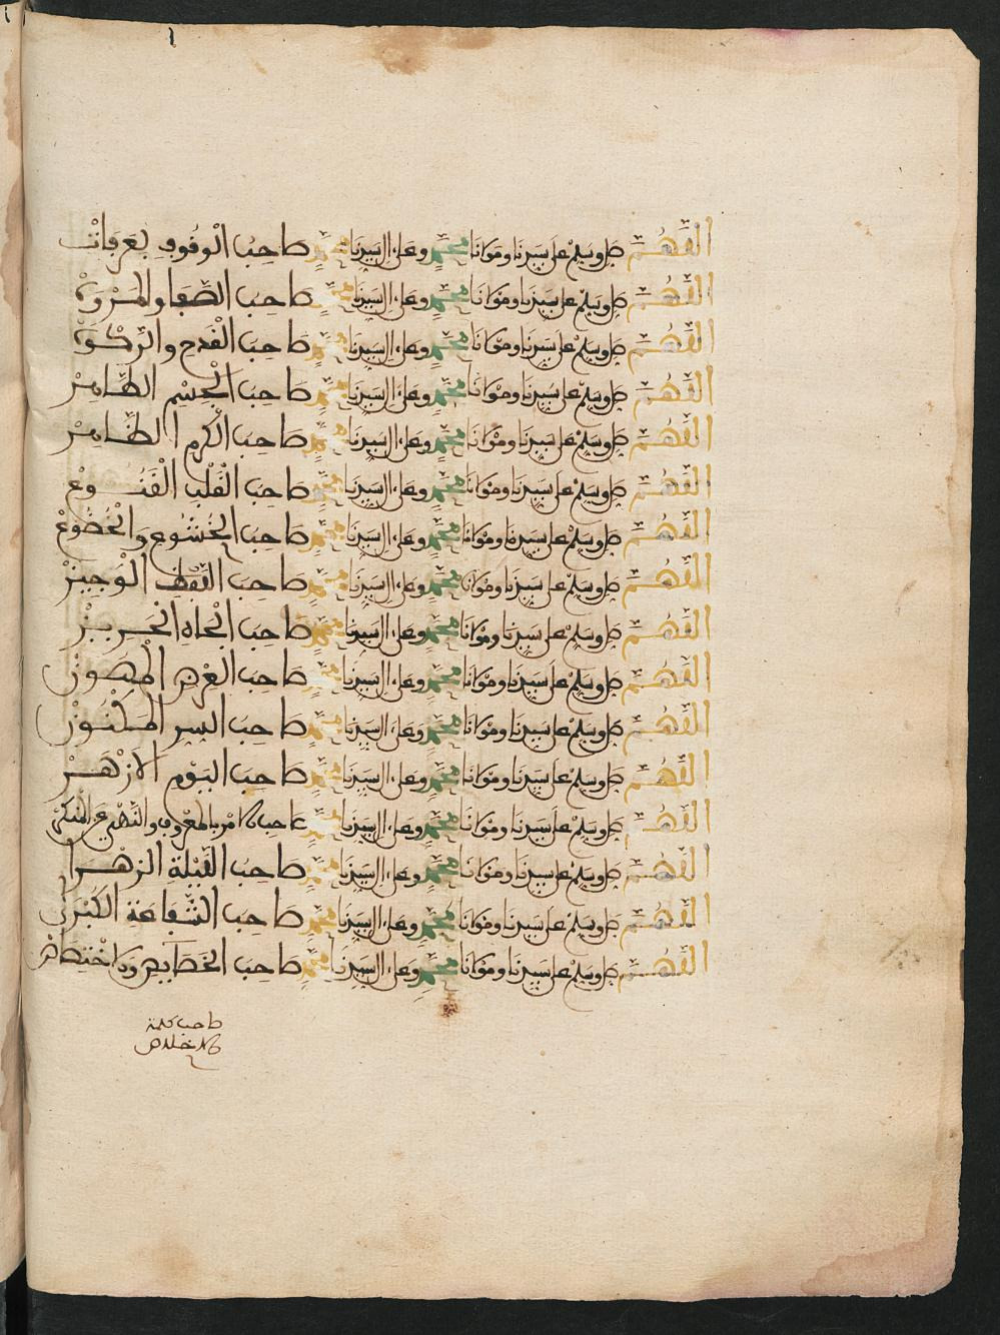 اللهم صل وسلم على سيدنا ومولانا محمد وعلى ءال سيدنا محمد صاحب الوقوف بعرفات
اللهم صل وسلم على سيدنا ومولانا محمد وعلى ءال سيدنا محمد صاحب الصفا والمروة
اللهم صل وسلم على سيدنا ومولانا محمد وعلى ءال سيدنا محمد صاحب القدح والركوة
اللهم صل وسلم على سيدنا ومولانا محمد وعلى ءال سيدنا محمد صاحب الجسم الطاهر
اللهم صل وسلم على سيدنا ومولانا محمد وعلى ءال سيدنا محمد صاحب الكرم الظاهر
اللهم صل وسلم على سيدنا ومولانا محمد وعلى ءال سيدنا محمد صاحب القلب القنوع
اللهم صل وسلم على سيدنا ومولانا محمد وعلى ءال سيدنا محمد صاحب الخشوع والخضوع
اللهم صل وسلم على سيدنا ومولانا محمد وعلى ءال سيدنا محمد صاحب اللفظ الوجيز
اللهم صل وسلم على سيدنا ومولانا محمد وعلى ءال سيدنا محمد صاحب الجاه الحريز
اللهم صل وسلم على سيدنا ومولانا محمد وعلى ءال سيدنا محمد صاحب العرض المصون
اللهم صل وسلم على سيدنا ومولانا محمد وعلى ءال سيدنا محمد صاحب السر المكنون
اللهم صل وسلم على سيدنا ومولانا محمد وعلى ءال سيدنا محمد صاحب اليوم الازهر
اللهم صل وسلم على سيدنا ومولانا محمد وعلى ءال سيدنا محمد صاحب الامر بالمعروف والنهي عن المنكر
اللهم صل وسلم على سيدنا ومولانا محمد وعلى ءال سيدنا محمد صاحب القبلة الزهرا
اللهم صل وسلم على سيدنا ومولانا محمد وعلى ءال سيدنا محمد صاحب الشفاعة الكبرى
اللهم صل وسلم على سيدنا ومولانا محمد وعلى ءال سيدنا محمد صاحب الخصايص والاختصاص
صاحب كلمة
الاخلاص